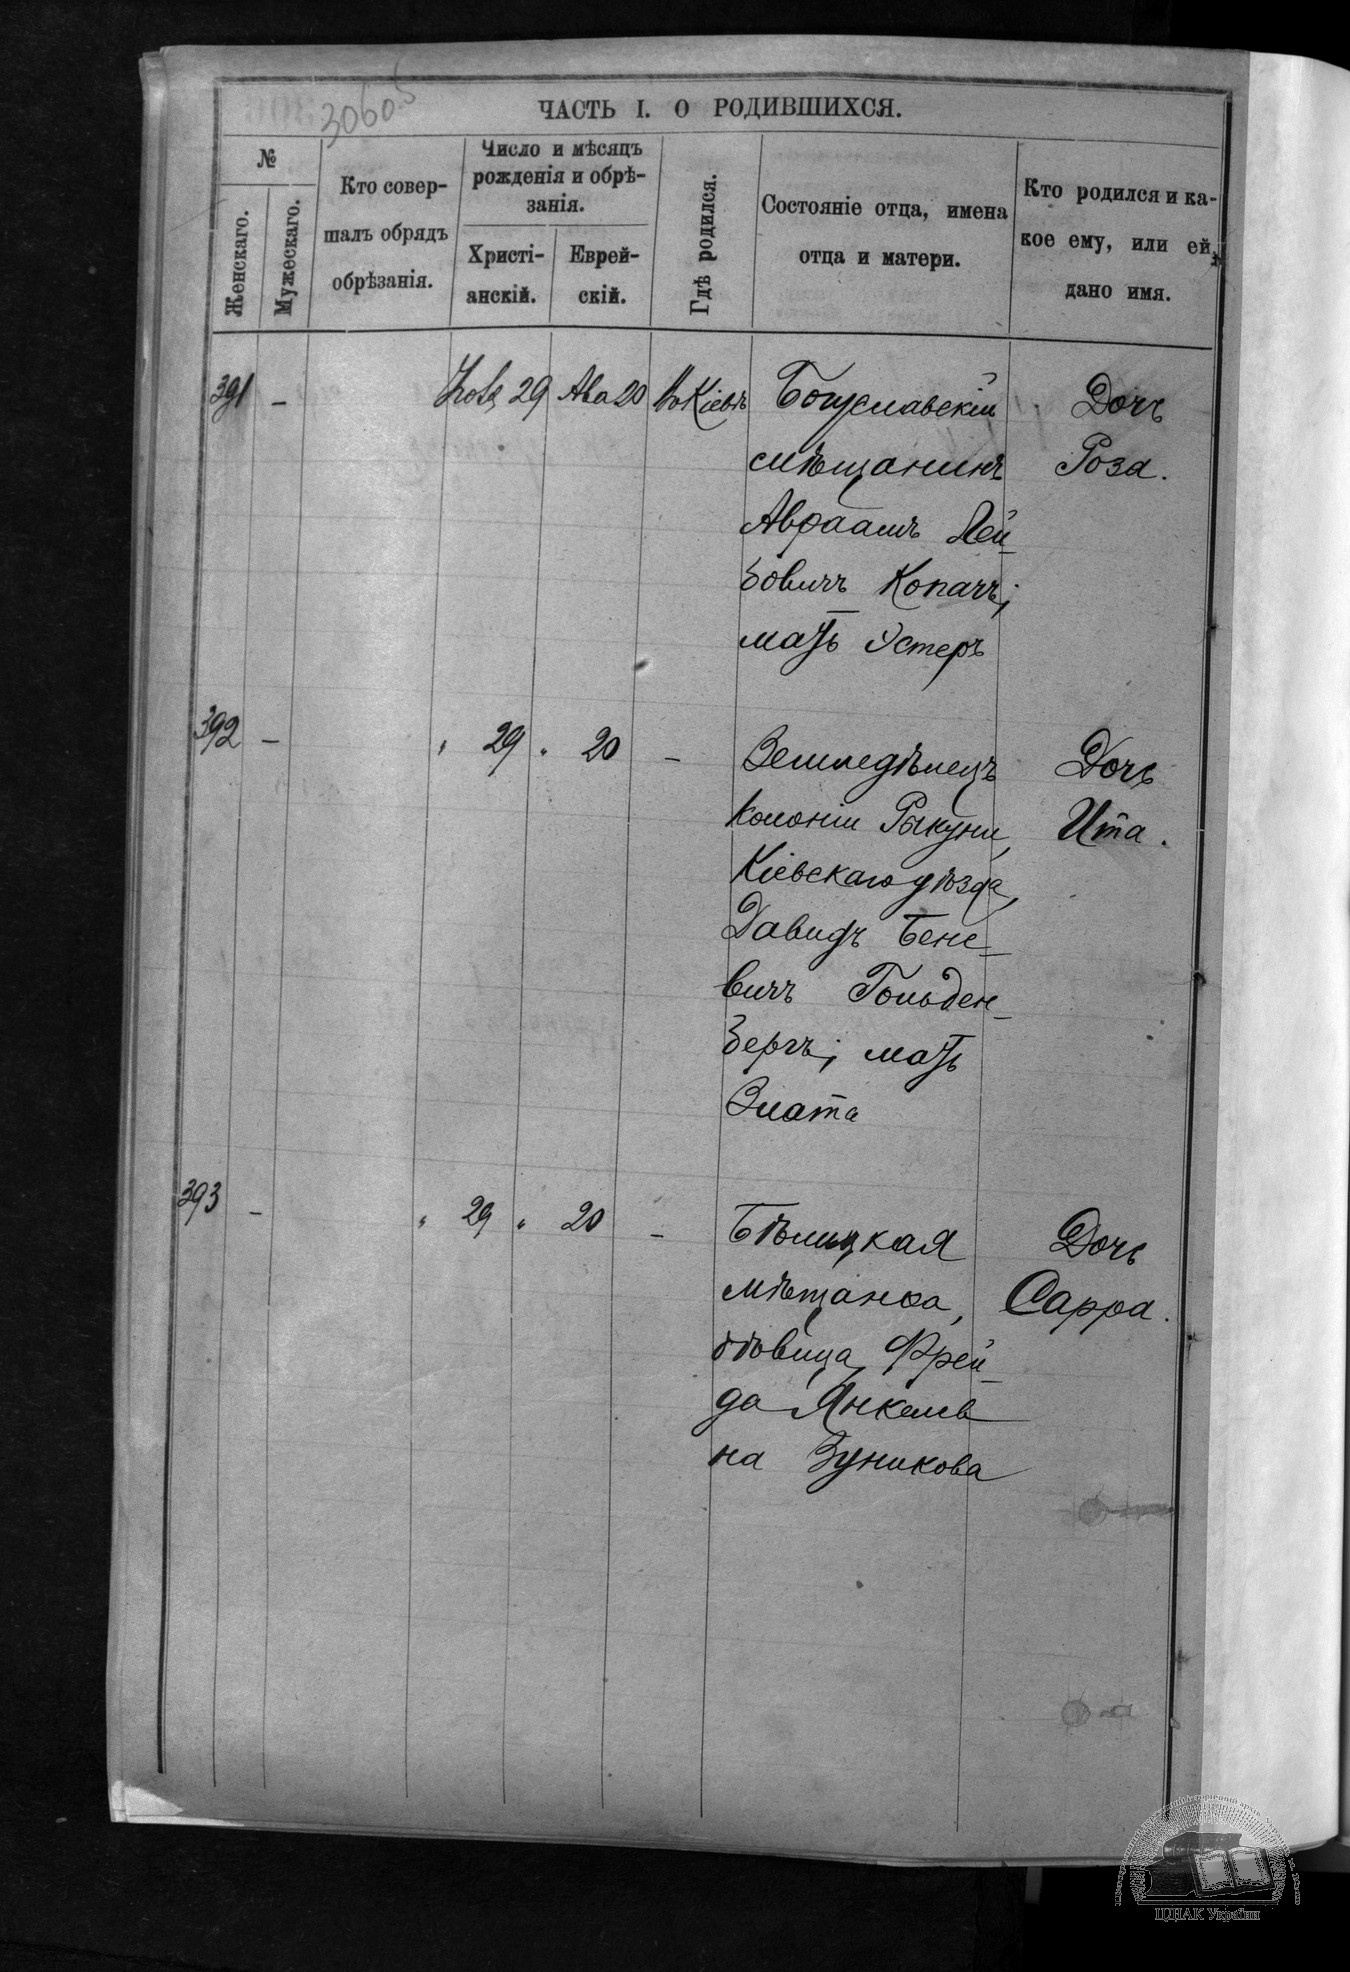 306об
ЧАСТЬ I. О РОДИВШИХСЯ.
№
Женскаго.
Мужескаго.
Кто совер-
шалъ обрядъ
обрѣзанія.
Число и мѣсяцъ
рожденія и обрѣ-
занія.
Христі-
анскій.
Еврей-
скій.
Гдѣ родился.
Состояніе отца, имена
отца и матери.
Кто родился и ка-
кое ему, или ей,
дано имя.
391 - 29 Ава 20 Въ Кіевѣ Богуславскій Дочь
мѣщанинъ Роза.
Авраамъ Лей-
бовичъ Копачъ;
мать Эстеръ
392 - " 29 " 20 - Земледѣлецъ Дочь
колоніи Рыкуни, Ита.
Кіевскаго уѣзда,
Давидъ Бене-
вичъ Гольден-
бергъ; мать
Злата
393 - " 29 " 20 - Бѣлицкая Дочь
мѣщанка, Сарра.
дѣвица Фрей-
да Янкелев
на Зуникова
ЦДІАК України